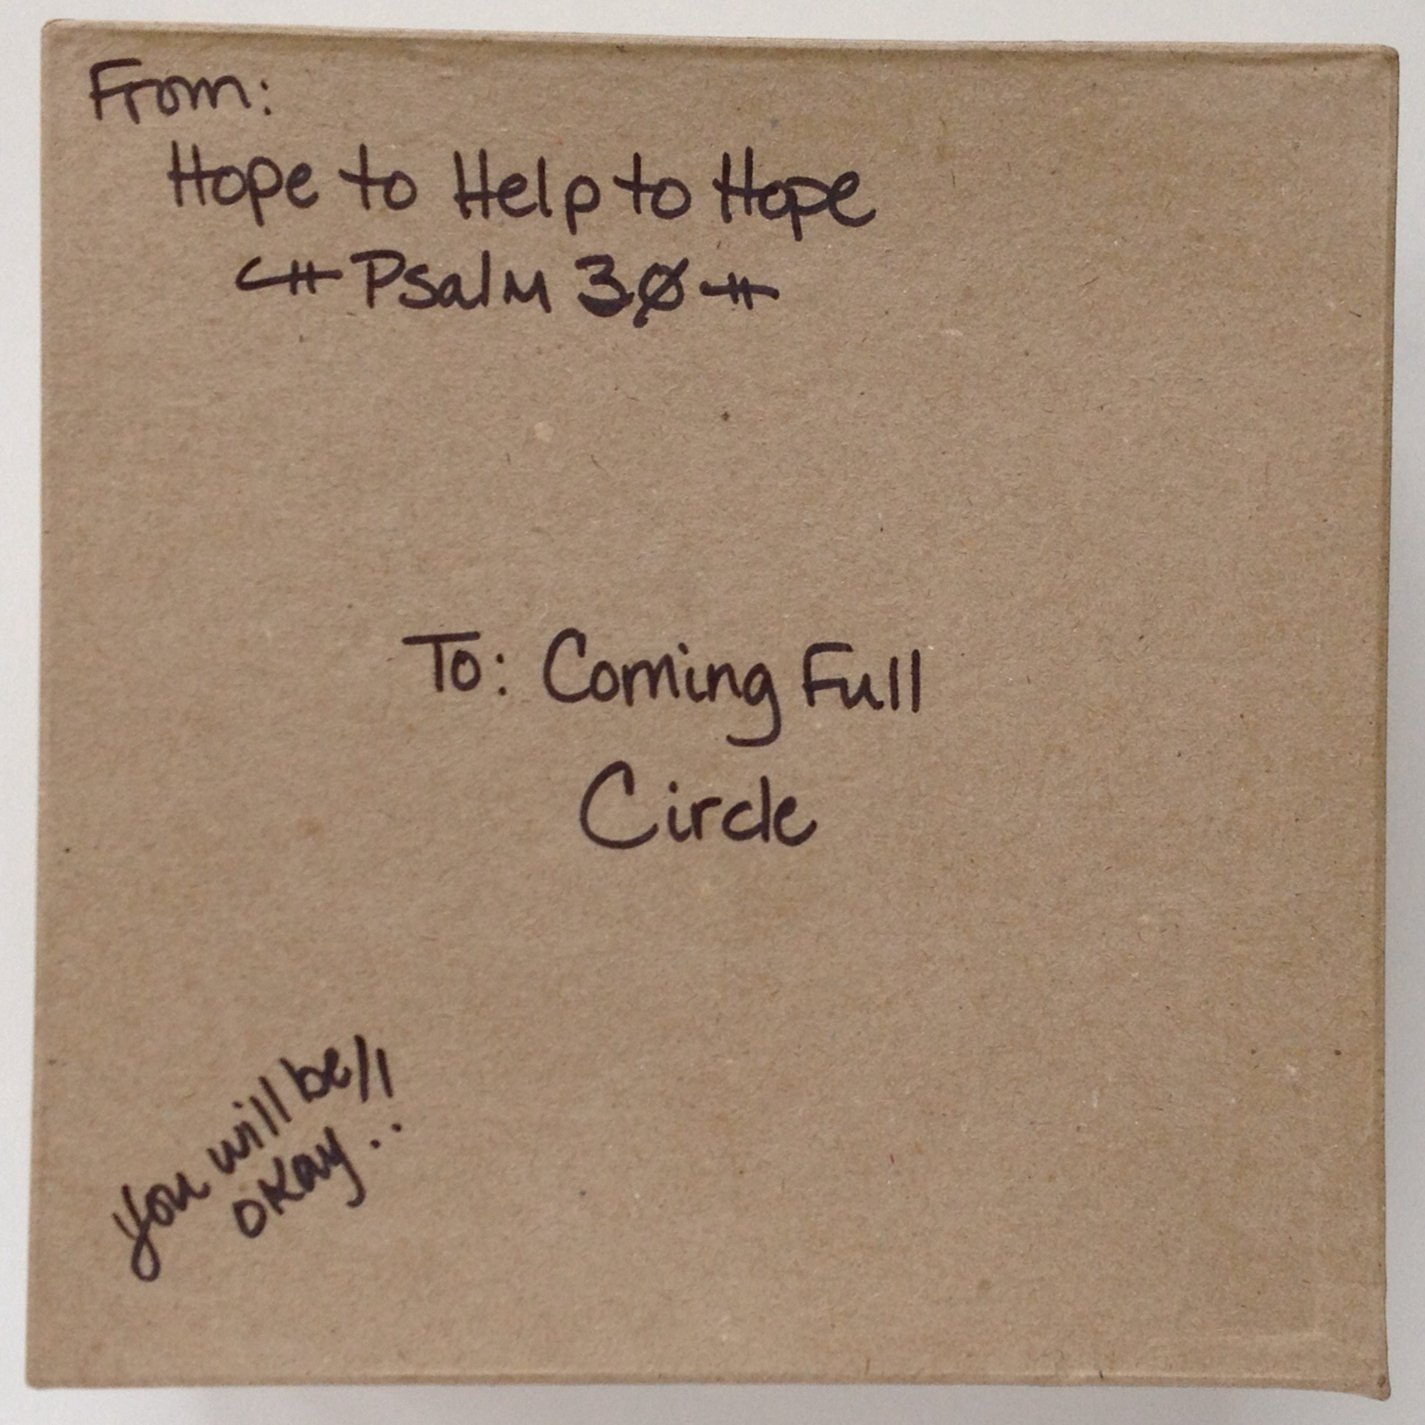 From:
Hope to Help to Hope
Psalm 30
To: Coming Full
Circle
you will be!!
okay..